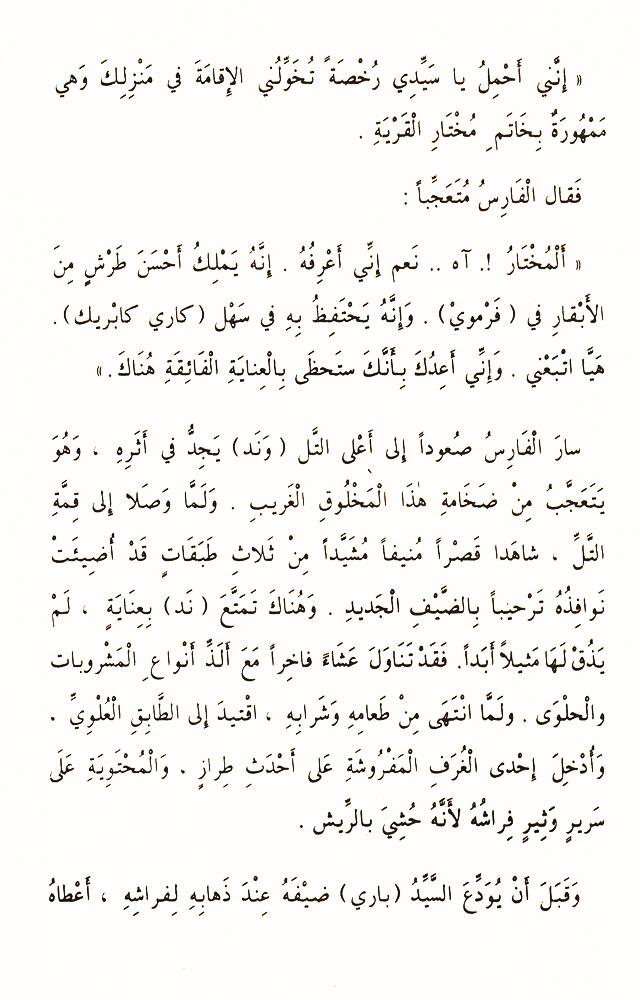 « إِنَّني أَحْمِلُ يا سَيِّدِي رُخْصَةً تُخَوِّلُني الإِقامَةَ في مَنْزِلِكَ وَهي
مَمْهُورَةٌ بِخَاتَمِ مُخْتَارِ الْقَرْيَةِ .
فَقال الْفَارِسُ مُتَعَجِّباً :
« أَلْمُخْتَارُ !. آه .. نَعم إِنِّي أَعْرِفُهُ . إِنَّهُ يَمْلِكُ أَحْسَنَ طَرْشٍ مِنَ
الأَبْقارِ في ( فَرْمويْ ) . وَإِنَّهُ يَحْتَفِظُ بِهِ في سَهْل ( كاري كابْريك ) .
هَيَّا اتْبَعْني . وَإِنِّي أَعِدُكَ بِأَنَّكَ سَتَحظَى بِالْعِنايَةِ الْفَائِقَةِ هُنَاكَ . »
سارَ الْفَارِسُ صُعوداً إِلى أَعْلى التَّل ( وَنَد ) يَجِدُّ في أَثَرِهِ ، وَهُوَ
يَتَعَجَّبُ مِنْ ضَخَامَةِ هٰذَا الْمَخْلُوقِ الْغَريبِ . وَلَمَّا وَصَلا إِلى قِمَّةِ
التَّلِّ ، شاهَدا قَصْراً مُنيفاً مُشَيَّداً مِنْ ثَلاثِ طَبَقَاتٍ قَدْ أُضيئَتْ
نَوافِذُهُ تَرْحيباً بِالضَّيْفِ الْجَديدِ . وَهُنَاكَ تَمَتَّعَ ( نَد ) بِعِنَايَةٍ ، لَمْ
يَذُقْ لَهَا مَثيلاً أَبَداً . فَقَدْ تَنَاوَلَ عَشَاءً فاخِراً مَعَ أَلَذِّ أَنْواعِ الْمَشْروبات
والْحلْوَى . ولَمَّا انْتَهَى مِنْ طَعامِهِ وَشَرابِهِ ، اقْتيدَ إِلى الطَّابِقِ الْعُلْوِيِّ .
وَأُدْخِلَ إِحْدى الْغُرَفِ الْمَفْروُشَةِ عَلى أَحْدَثِ طِرازٍ . وَالْمُحْتَوِيَةِ عَلَى
سَريرٍ وَثيرٍ فِراشُهُ لأَنَّهُ حُشِيَ بالرِّيش .
وَقَبَلَ أَنْ يُوَدِّعَ السَّيِّدُ ( باري ) ضيْفَهُ عِنْدَ ذَهابِهِ لِفراشِهِ ، أَعْطاهُ